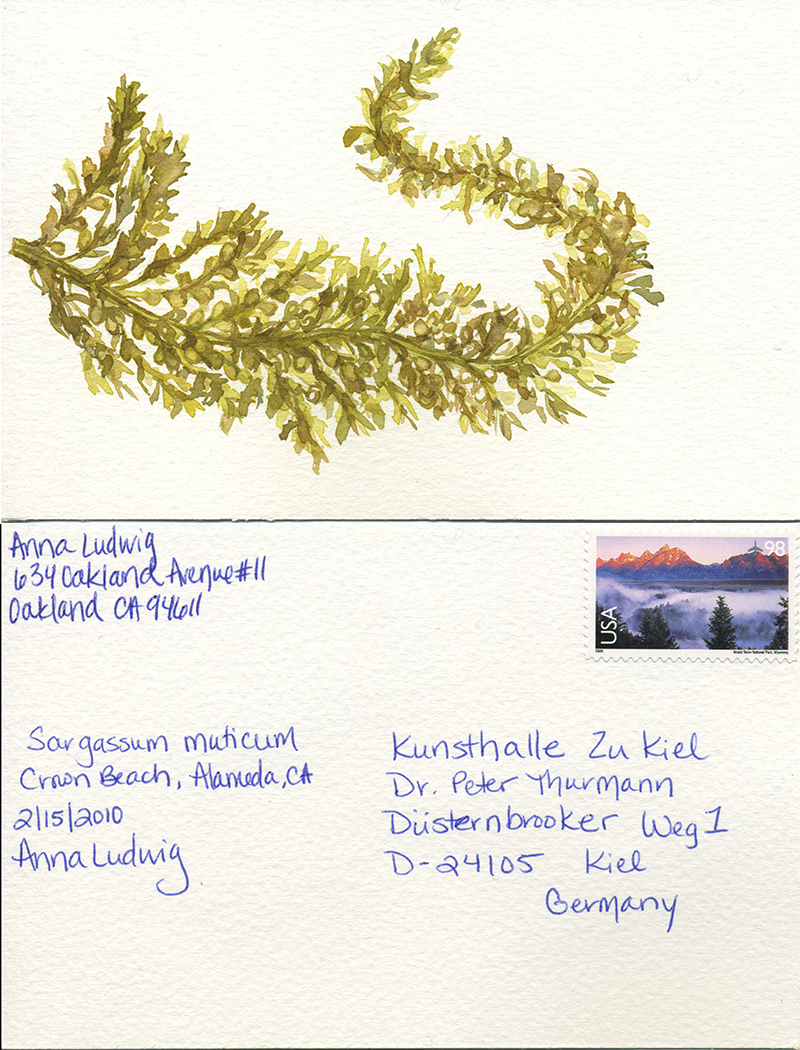 Anna Ludwig
634 Oakland Avenue #11
Oakland CA 94611
98
USA
Sargassum muticum
Crown Beach, Alameda, CA
2/15/2010
Anna Ludwig
Kunsthalle Zu Kiel
Dr. Peter Thurmann
Düsternbrooker Weg 1
D-24105 Kiel
Germany